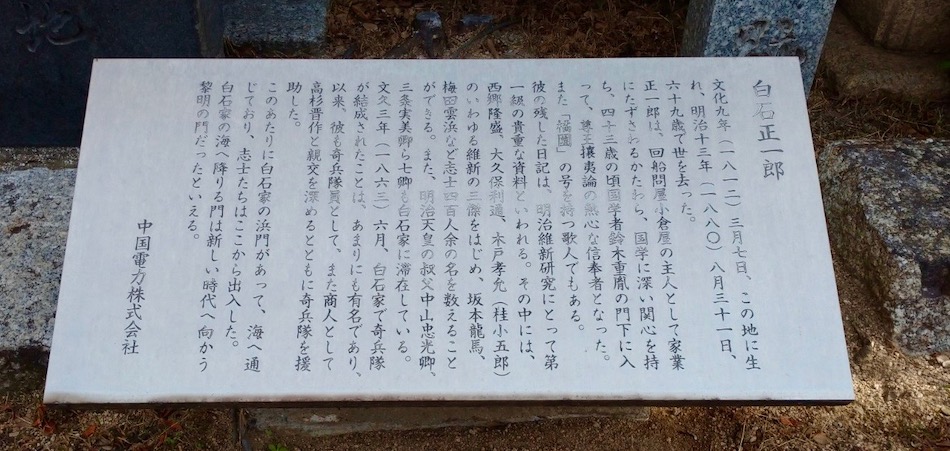 白石正一郎
文化九年(一八一二)三月七日、この地に生
れ、明治十三年(一八八〇)八月三十一日、
六十九歳で世を去った。
正一郎は、回船問屋小倉屋の主人として家業
にたずさわるかたわら、国学に深い関心を持
ち、四十三歳の頃国学者鈴木重胤の門下に入
って、尊王攘夷論の熱心な信奉者となった。
また「福圃」の号を持つ歌人でもある。
彼の残した日記は、明治維新研究にとって第
一級の貴重な資料といわれる。その中には、
西郷隆盛、大久保利通、木戸孝允(桂小五郎)
のいわゆる維新の三傑をはじめ、坂本龍馬、
梅田雲浜など志士四百人余の名を数えること
ができる。また、明治天皇の叔父中山忠光卿、
三条実美卿ら七卿も白石家に滞在している。
文久三年(一八六三)六月、白石家で奇兵隊
が結成されたことは、あまりにも有名であり、
以来、彼も奇兵隊員として、また商人として
高杉晋作と親交を深めるとともに奇兵隊を援
助した。
このあたりに白石家の浜門があって、海へ通
じており、志士たちはここから出入した。
白石家の海へ降りる門は新しい時代へ向かう
黎明の門だったといえる。
中国電力株式会社